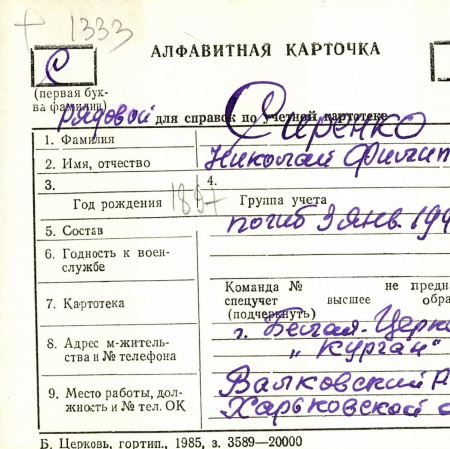 + 1333
С АЛФАВИТНАЯ КАРТОЧКА
(первая бук-
ва фамилии)
Рядовой для справок по учетной картотеке
1. Фамилия Сиренко
2. Имя, отчество Николай Филип
3. 4.
Год рождения 1897 Группа учета
5. Состав погиб 3 янв. 194
6. Годность к воен-
службе
Команда № не предна
7. Картотека спецучет высшее обра
(подчеркнуть)
8. Адрес м-житель- г. Белая-Церко
ства и № телефона „Курган"
9. Место работы, дол- Валковский Р
жность и № тел. ОК Харьковской о
Б. Церковь, гортип., 1985, з. 3589—20000